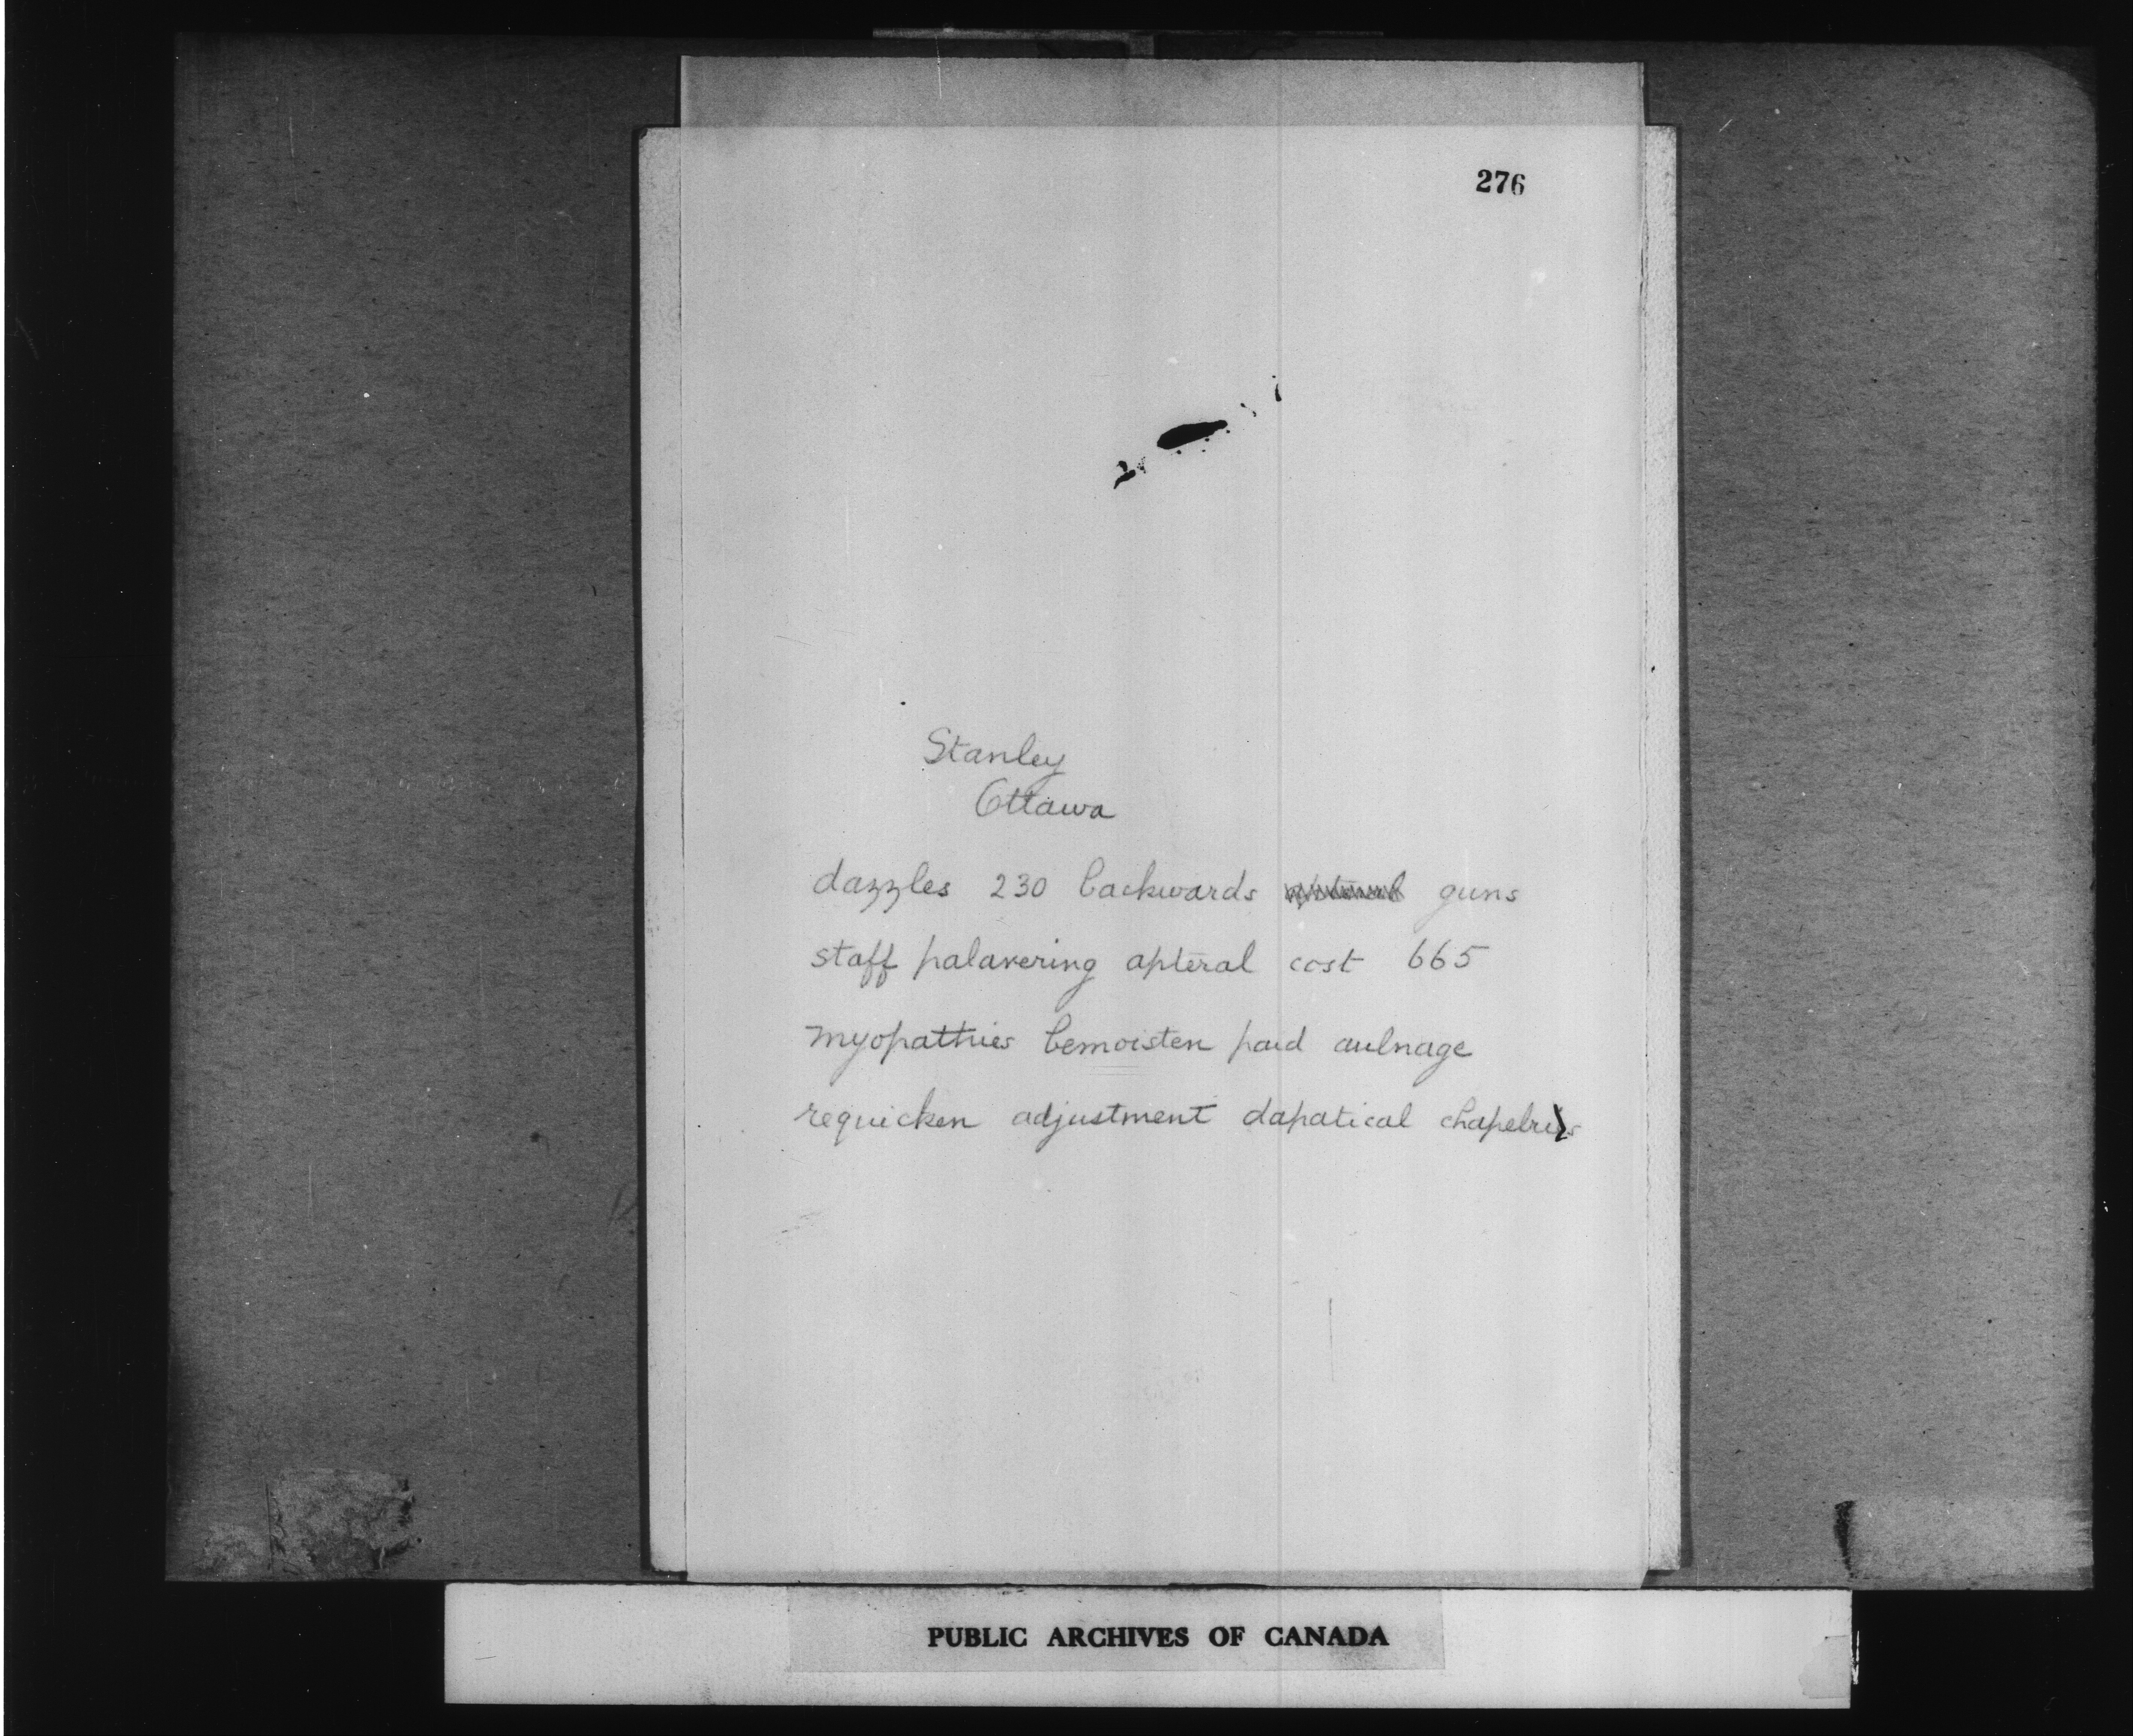 276
Stanley
Ottawa
dazzles 230 backwards guns
staff palavering apteral cost 665
myopathies bemoisten paid aulnage
requicken adjustment dapatical chapelries
PUBLIC ARCHIVES OF CANADA